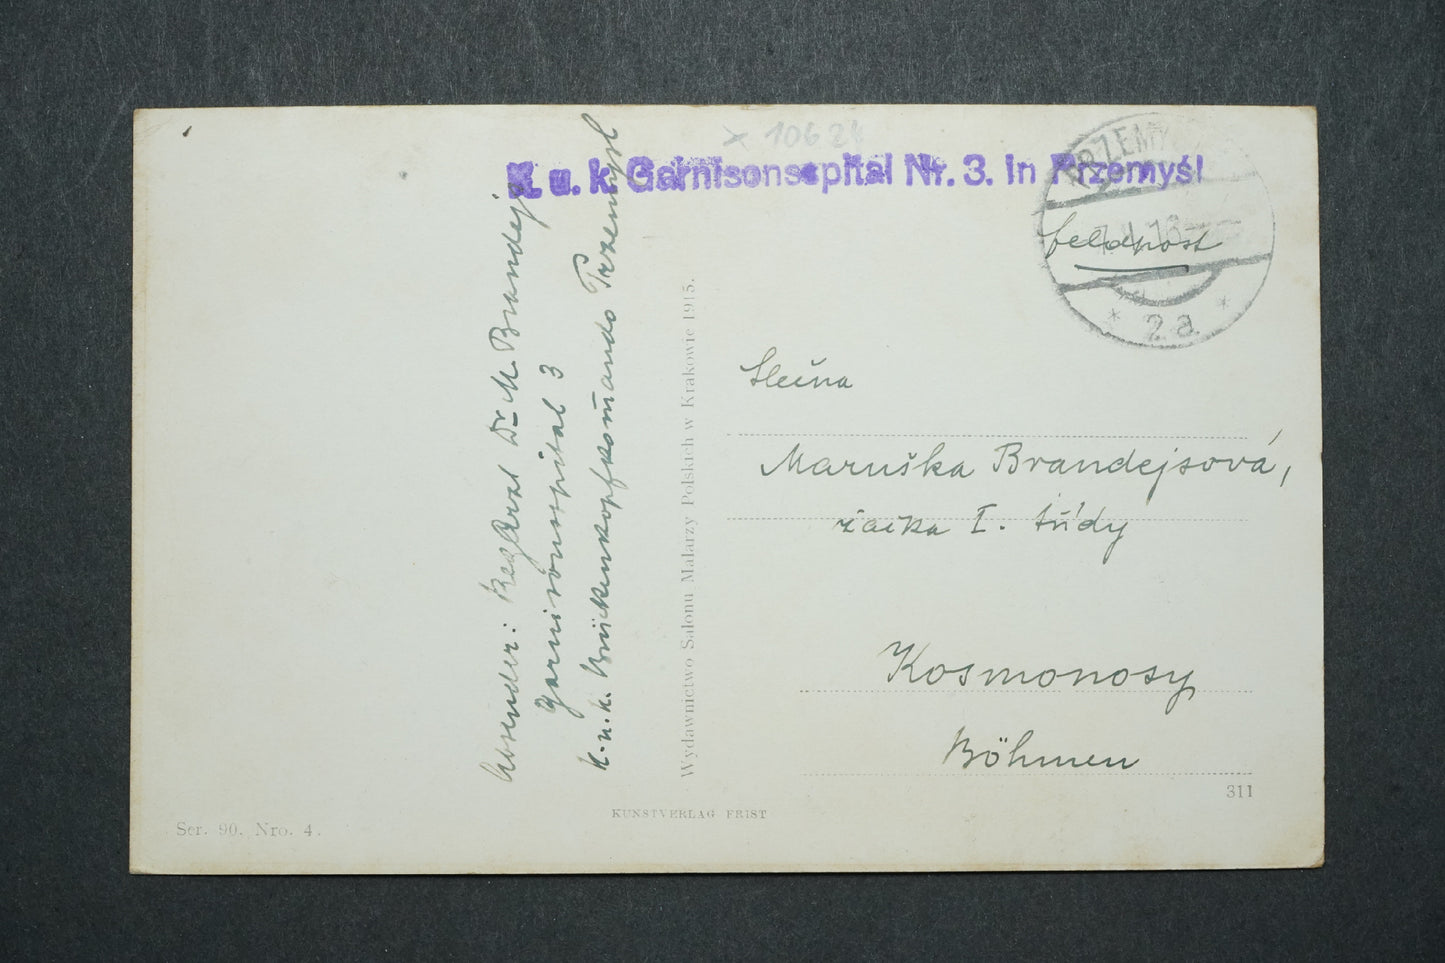 × 10624
K. u. k. Garnisonsspital Nr. 3. in Przemyśl
PRZEMY
16
Feldpost
* 2a *
Absender: RegArzt Dr M. Brandejs
Garnisonsspital 3
k. u. k. Brückenkopfkom̄ando Przemysl
Wydawnictwo Salonu Malarzy Polskich w Krakowie 1915.
Slečna
Maruška Brandejsová,
žačka I. třídy
Kosmonosy
Böhmen
311
KUNSTVERLAG FRIST
Ser. 90. Nro. 4.